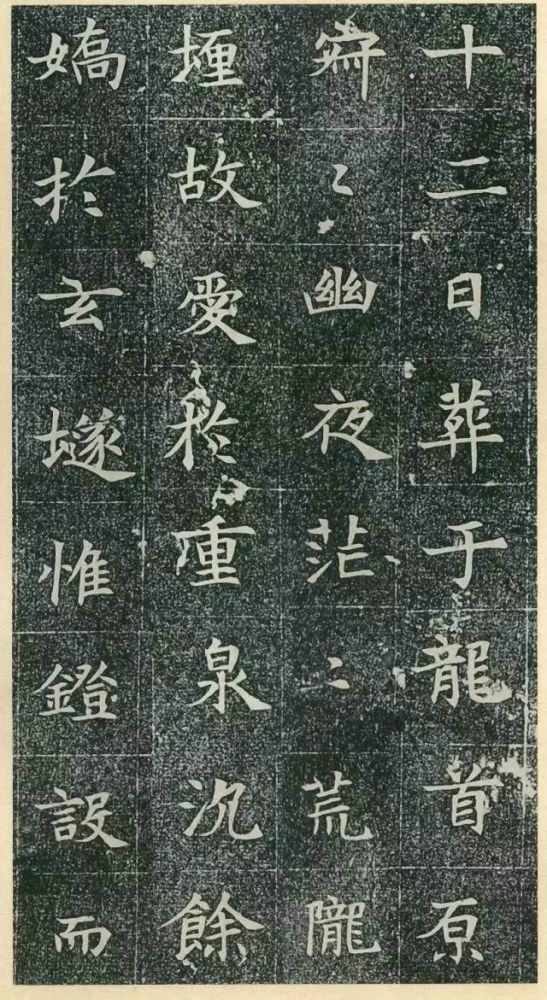 十二日葬于龍首原
寂〻幽夜茫〻荒隴
埋故愛於重泉沉餘
嬌於玄隧惟鐙設而